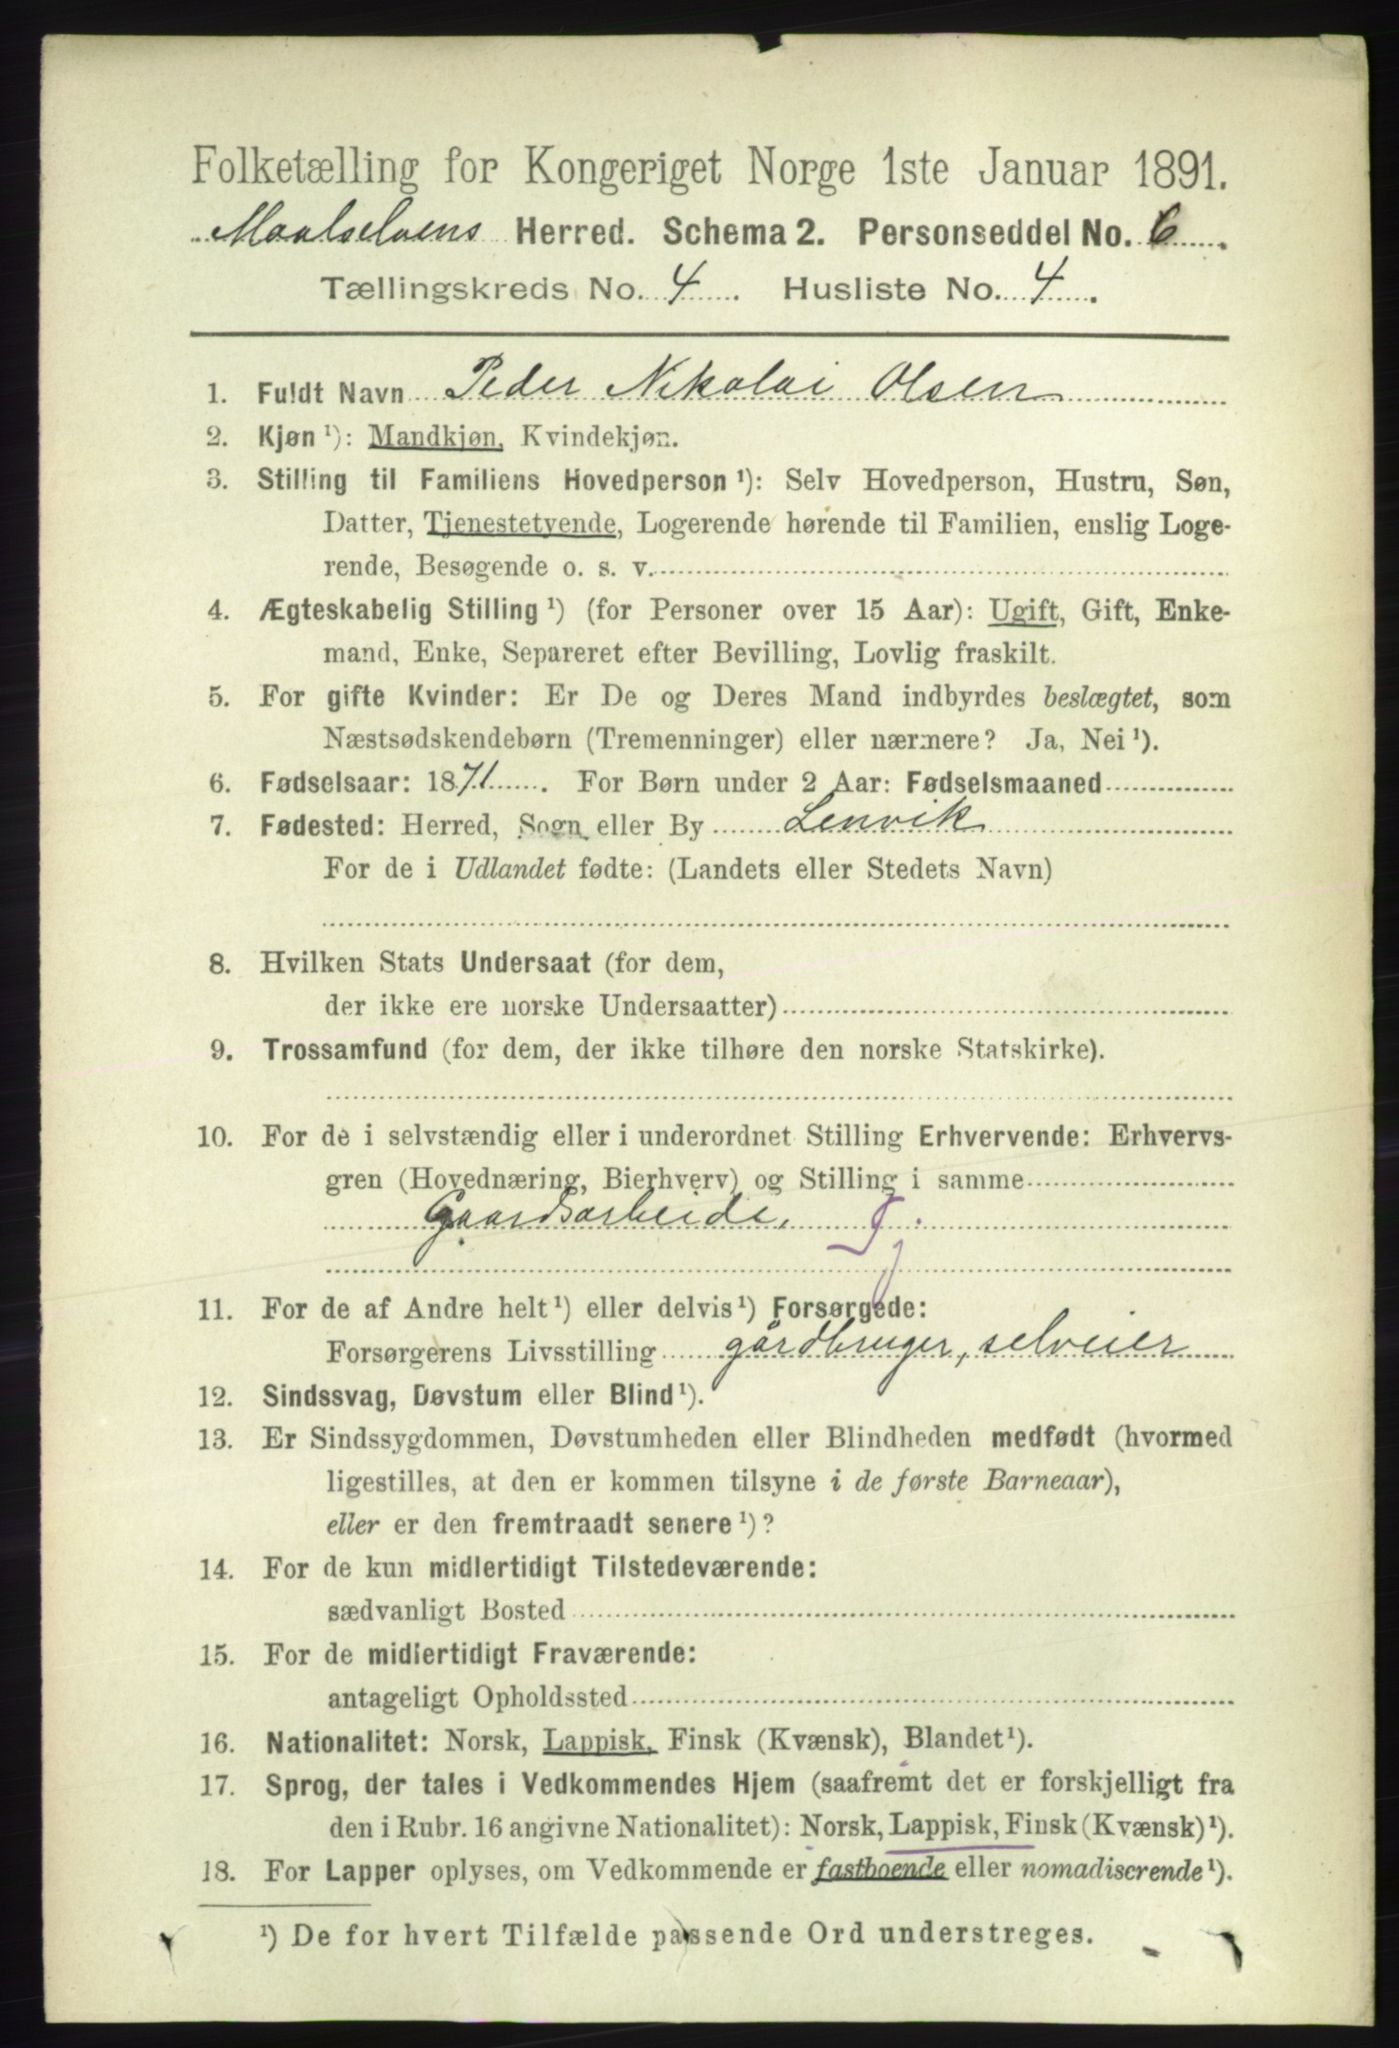 Folketælling for Kongeriget Norge 1ste Januar 1891.
Maalselvens Herred. Schema 2. Personseddel No. 6.
Tællingskreds No. 4. Husliste No. 4.
1. Fuldt Navn Peder Nikolai Olsen
2. Kjøn ¹): Mandkjøn, Kvindekjøn.
3. Stilling til Familiens Hovedperson ¹): Selv Hovedperson, Hustru, Søn,
Datter, Tjenestetyende, Logerende hørende til Familien, enslig Loge-
rende, Besøgende o. s. v.
4. Ægteskabelig Stilling ¹) (for Personer over 15 Aar): Ugift, Gift, Enke-
mand, Enke, Separeret efter Bevilling, Lovlig fraskilt.
5. For gifte Kvinder: Er De og Deres Mand indbyrdes beslægtet, som
Næstsødskendebørn (Tremenninger) eller nærmere? Ja, Nei ¹).
6. Fødselsaar: 1871. For Børn under 2 Aar: Fødselsmaaned
7. Fødested: Herred, Sogn eller By Lenvik
For de i Udlandet fødte: (Landets eller Stedets Navn)
8. Hvilken Stats Undersaat (for dem,
der ikke ere norske Undersaatter)
9. Trossamfund (for dem, der ikke tilhøre den norske Statskirke).
10. For de i selvstændig eller i underordnet Stilling Erhvervende: Erhvervs-
gren (Hovednæring, Bierhverv) og Stilling i samme
Gaardsarbeide,
11. For de af Andre helt ¹) eller delvis ¹) Forsørgede:
Forsørgerens Livsstilling gårdbruger, selveier
12. Sindssvag, Døvstum eller Blind ¹).
13. Er Sindssygdommen, Døvstumheden eller Blindheden medfødt (hvormed
ligestilles, at den er kommen tilsyne i de første Barneaar),
eller er den fremtraadt senere ¹)?
14. For de kun midlertidigt Tilstedeværende:
sædvanligt Bosted
15. For de midlertidigt Fraværende:
antageligt Opholdssted
16. Nationalitet: Norsk, Lappisk, Finsk (Kvænsk), Blandet ¹).
17. Sprog, der tales i Vedkommendes Hjem (saafremt det er forskjelligt fra
den i Rubr. 16 angivne Nationalitet): Norsk, Lappisk, Finsk (Kvænsk) ¹).
18. For Lapper oplyses, om Vedkommende er fastboende eller nomadiserende ¹).
¹) De for hvert Tilfælde passende Ord understreges.